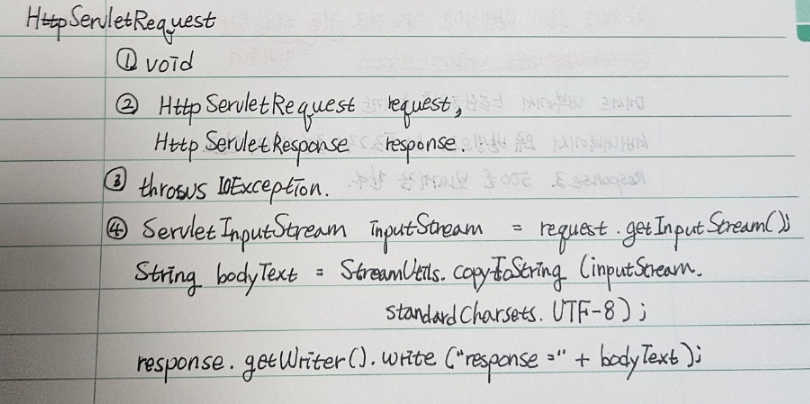 HttpServletRequest
① void
② HttpServletRequest request,
HttpServletResponse response.
③ throws IOException.
④ ServletInputStream inputStream = request.getInputStream();
String bodyText = StreamUtils.copyToString (inputStream.
standardCharsets.UTF-8);
response.getWriter().write ("response =" + bodyText);